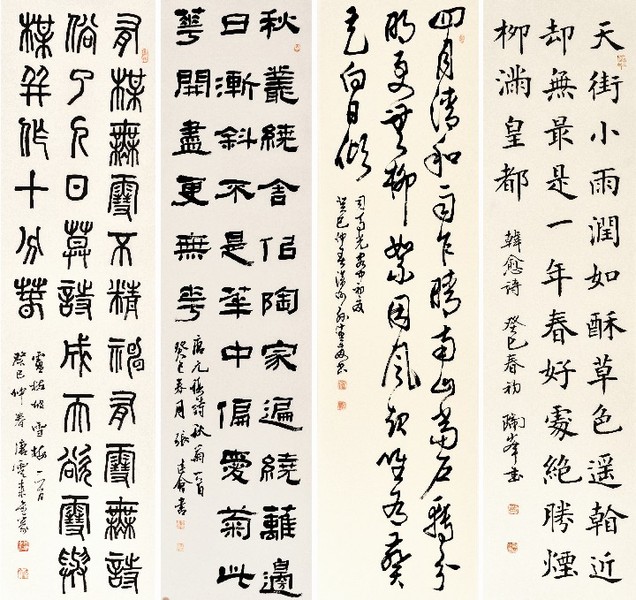 天街小雨潤如酥草色遥看近
却無最是一年春好處絕勝煙
柳滿皇都
韓愈詩 癸巳春初 書
四月清和雨乍晴南山當戶轉分
明更無柳絮因風起唯有葵
花向日傾
司馬光客中初夏
癸巳仲春 書
秋叢繞舍佀陶家遍繞籬邊
日漸斜不是華中偏愛菊此
華開盡更無華
唐元稹詩秋菊一首
癸巳春月張建會書
有槑無雪不精神有雪無詩
俗了人日莫詩成天欲雪與
槑并作十分萅
盧梅坡雪梅一首
癸巳仲春